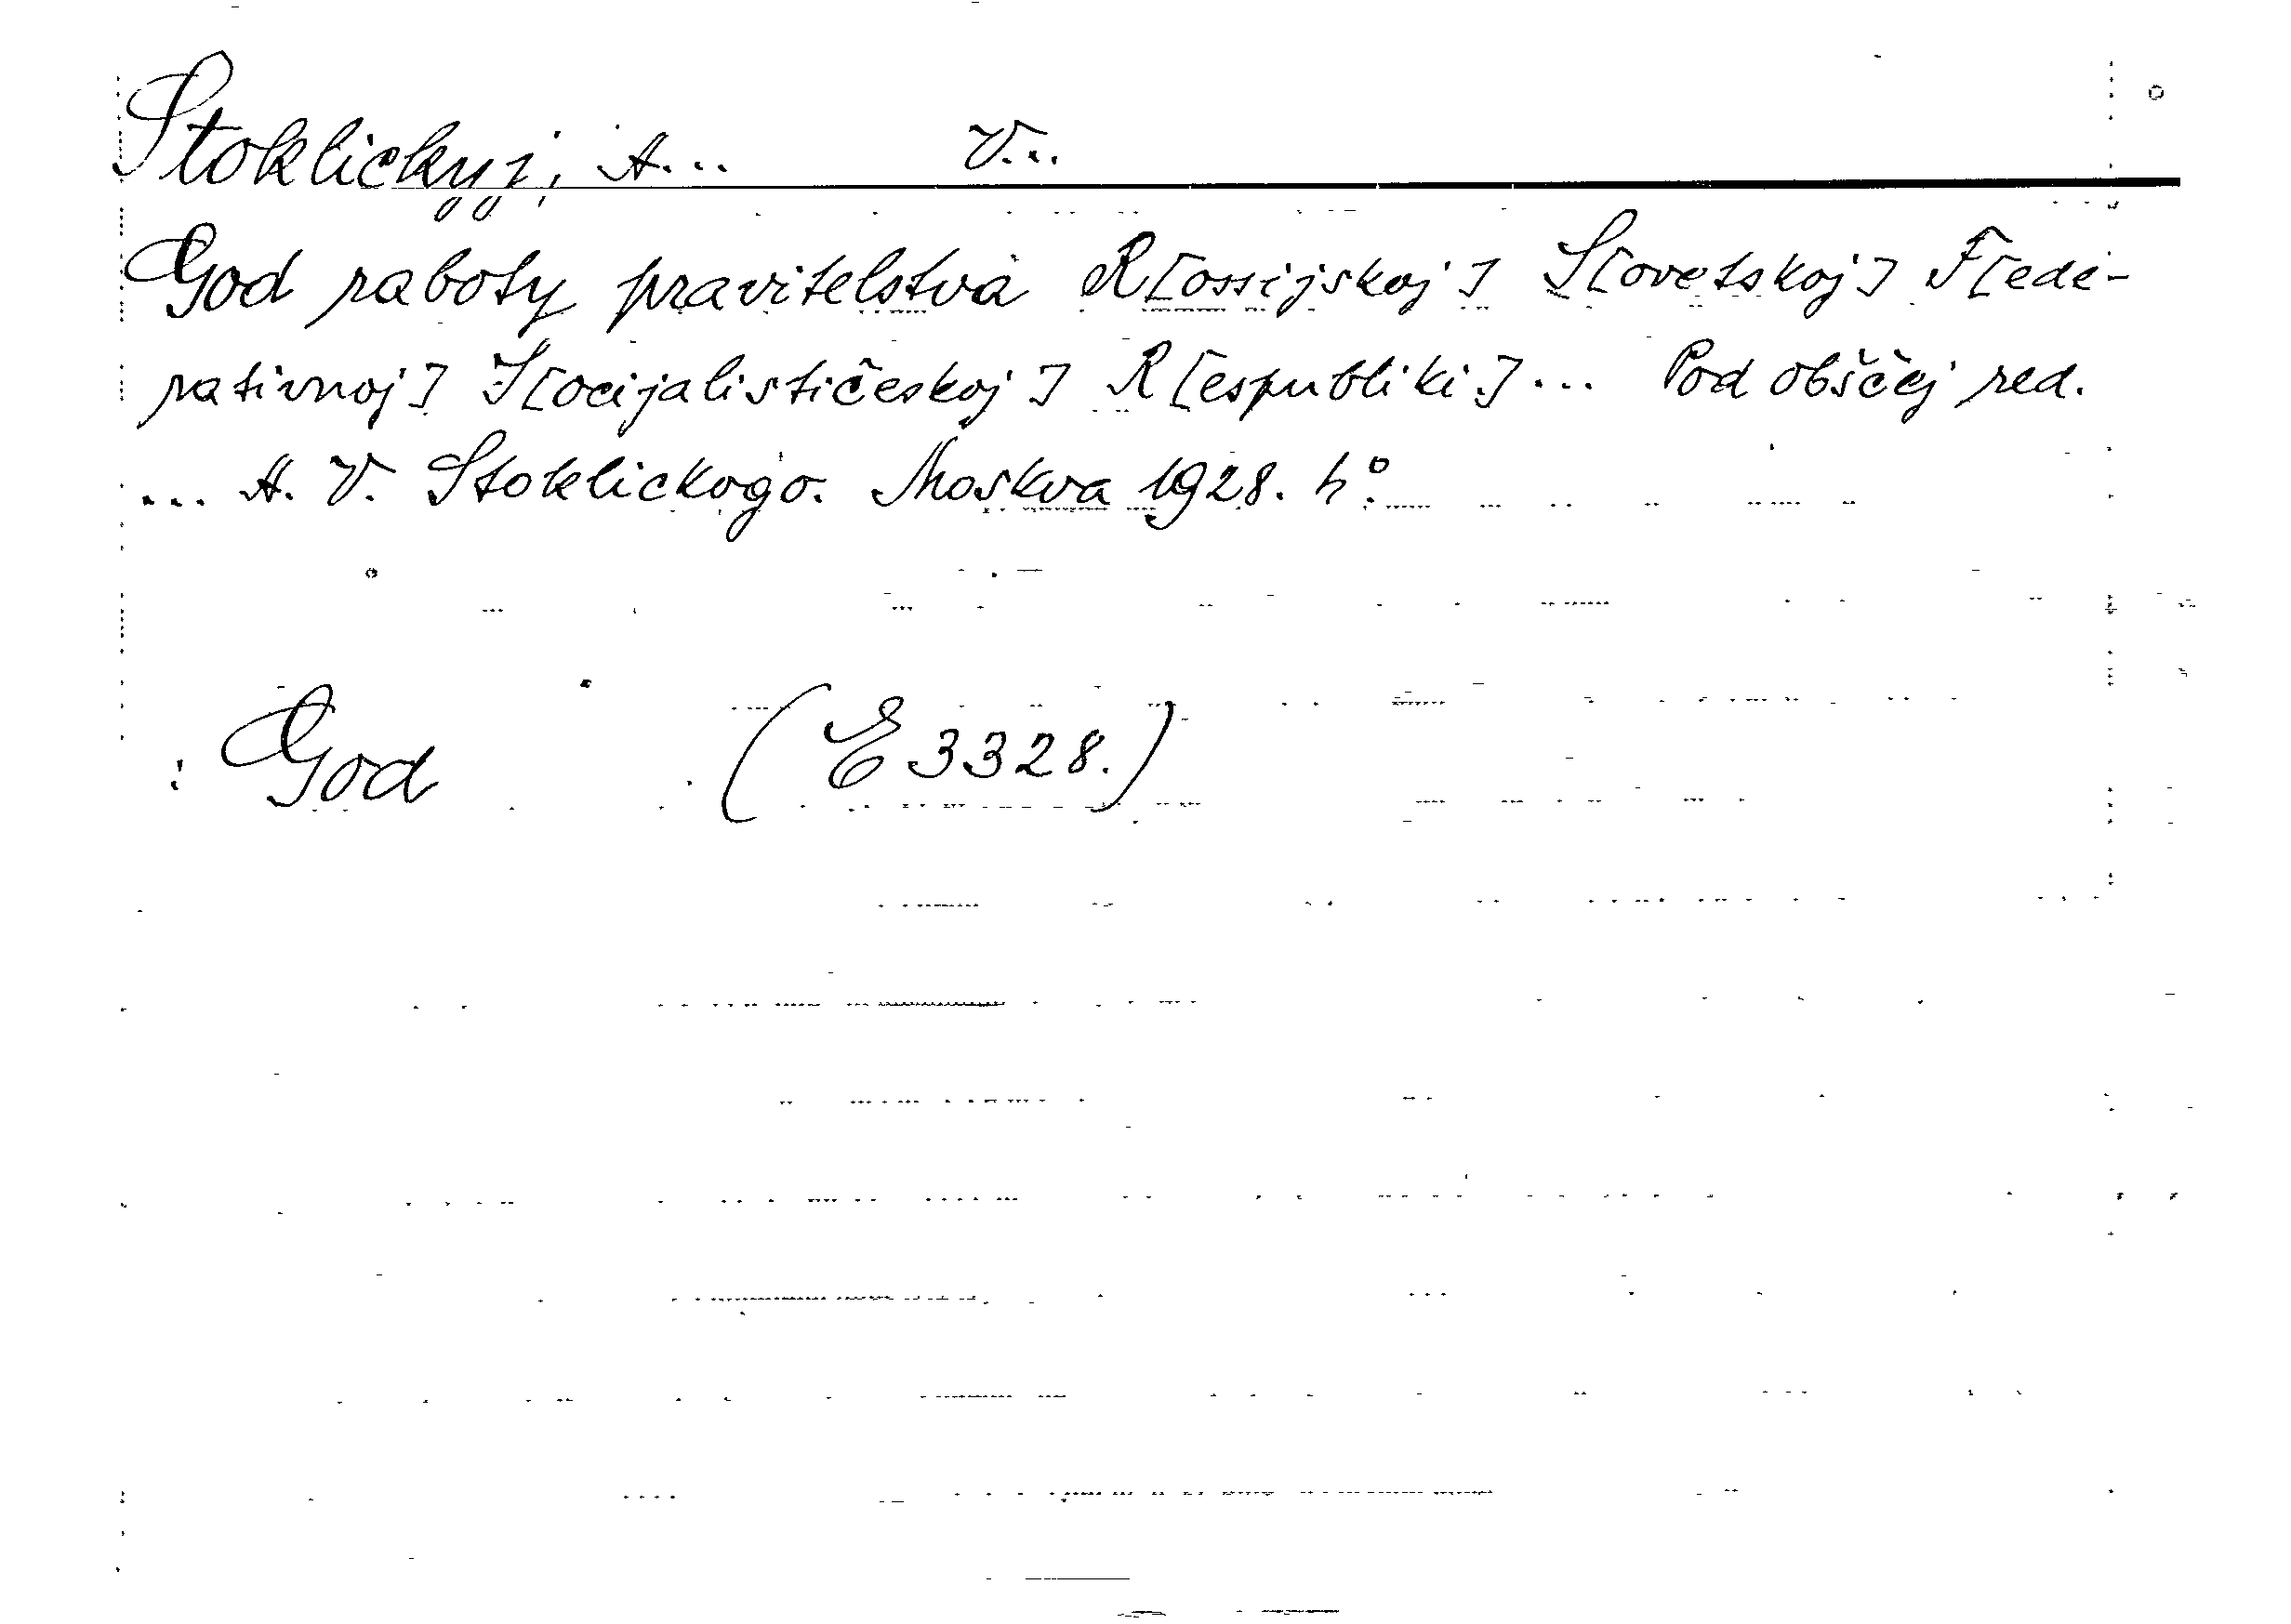 Stoklickyj, A... V...
God raboty pravitelstva R[ossijskoj] S[ovetskoj] F[ede-
rativnoj] S[ocijalističeskoj] R[espubliki]... Pod obščej red.
... A. V. Stoklickogo. Moskva 1928. 4°.
: God (E 3328.)